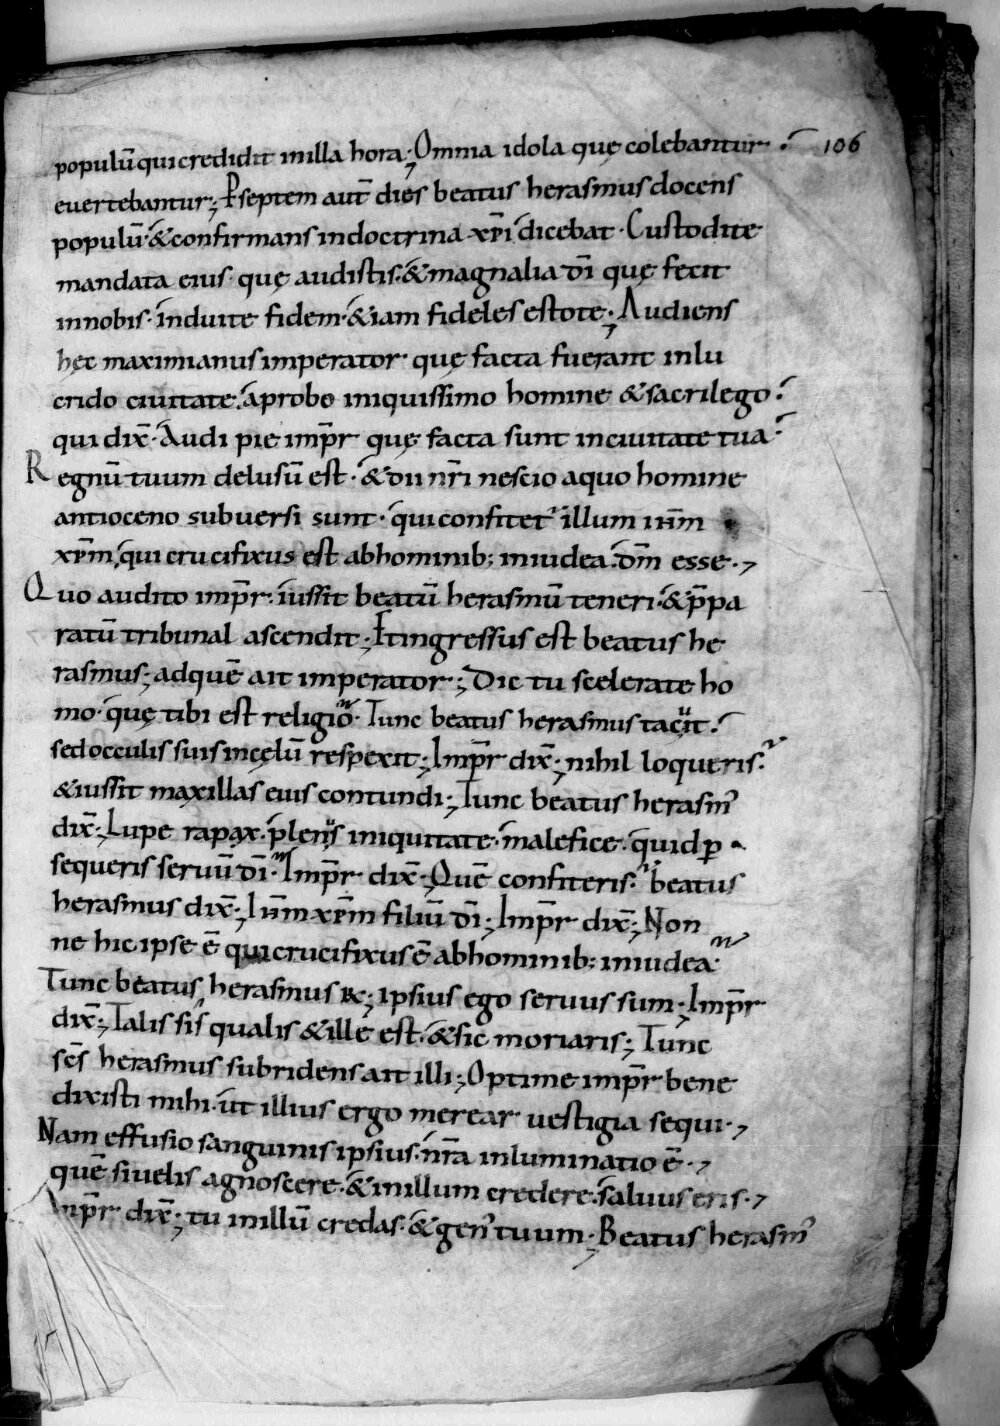 populū qui credidit in illa hora; Omnia idola quę colebantur · 106
euertebantur; P septem aut̄ dies beatus herasmus docens
populū · & confirmans in doctrina xp̄i dicebat · Custodite
mandata eius · quę audistis · & magnalia dī quę fecit
in nobis · induite fidem · & iam fideles estote; Audiens
hęc maximianus imperator · quę facta fuerant in lu
crido ciuitate · a probo iniquissimo homine & sacrilego ·
qui dix̄ · Audi pie imp̄r quę facta sunt in ciuitate tua ·
Regnū tuum delusū est · & dii nr̄i nescio a quo homine
antioceno subuersi sunt · qui confitet᷑ illum ihm̄
xp̄m · qui crucifixus est ab hominib; in iudea · dm̄ esse ·,
Quo audito imp̄r · iussit beatū herasmū teneri · & p̄pa
ratū tribunal ascendit; Et ingressus est beatus he
rasmus; ad quē ait imperator; Dic tu scelerate ho
mo · quę tibi est religio · Tunc beatus herasmus tacuit ·
sed occulis suis in cęlū respexit; Imp̄r dix̄; nihil loqueris ·
& iussit maxillas eius contundi; Tunc beatus herasm᾽
dix̄; Lupe rapax · plenus iniquitate · malefice · quid ꝑ
sequeris seruū dī · Imp̄r dix̄; Quē confiteris · beatus
herasmus dix̄; Ihm̄ xp̄m filiū dī; Imp̄r dix̄; Non
ne hic ipse ē qui crucifixus ē ab hominib; in iudea ·
Tunc beatus herasmus R; ipsius ego seruus sum; Imp̄r
dix̄; Talis sis qualis & ille est · & sic moriaris; Tunc
sc̄s herasmus subridens ait illi; Optime imp̄r bene
dixisti mihi · ut illius ergo merear vestigia sequi ·,
Nam effusio sanguinis ipsius · nr̄a inluminatio ē ·,
quē si uelis agnoscere · & in illum credere · saluus eris ·,
Imp̄r dix̄; tu in illū credas · & gen᾽ tuum; Beatus herasm᾽